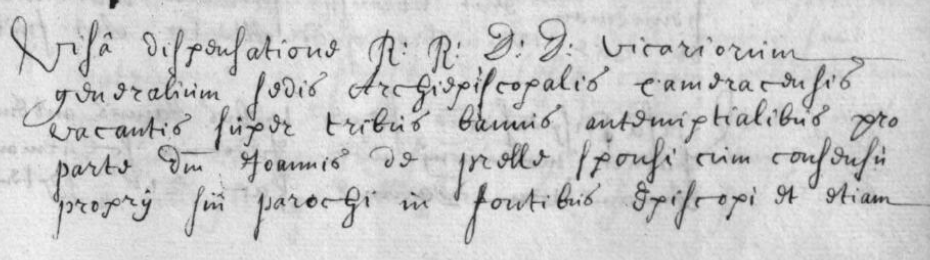 Visâ dispensatione R: R: D: D: vicariorum
generalium sedis Archiepiscopalis Cameracensis
vacantis super tribus bannis antenuptialibus pro
parte dni Joannis de prelle sponsi cum consensu
proprÿ sui parochi in fontibus Episcopi et etiam